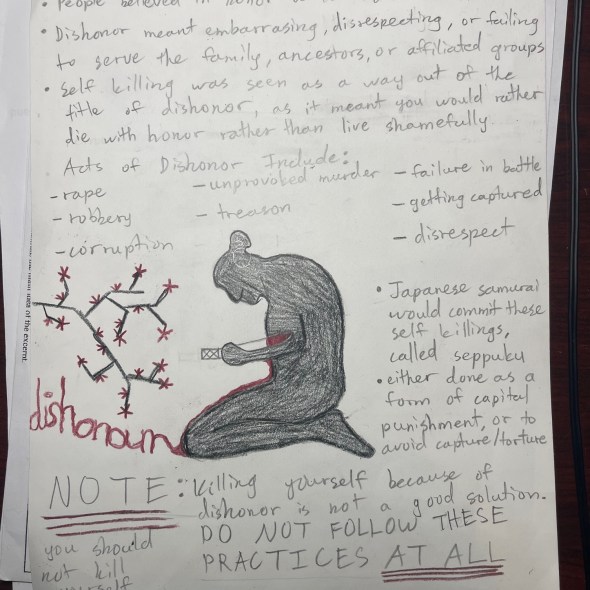 • People believed in honor or
• Dishonor meant embarrasing, disrespecting, or failing
to serve the family, ancestors, or affiliated groups
• Self killing was seen as a way out of the
title of dishonor, as it meant you would rather
die with honor rather than live shamefully.
Acts of Dishonor Include:
- rape
- robbery
- corruption
- unprovoked murder
- treason
- failure in battle
- getting captured
- disrespect
of the excerpt.
• Japanese samurai
would commit these
self killings,
called seppuku
• either done as a
form of capital
punishment, or to
avoid capture/torture
dishonour
NOTE:
killing yourself because of
dishonor is not a good solution.
DO NOT FOLLOW THESE
PRACTICES AT ALL
you should
not kill
yourself